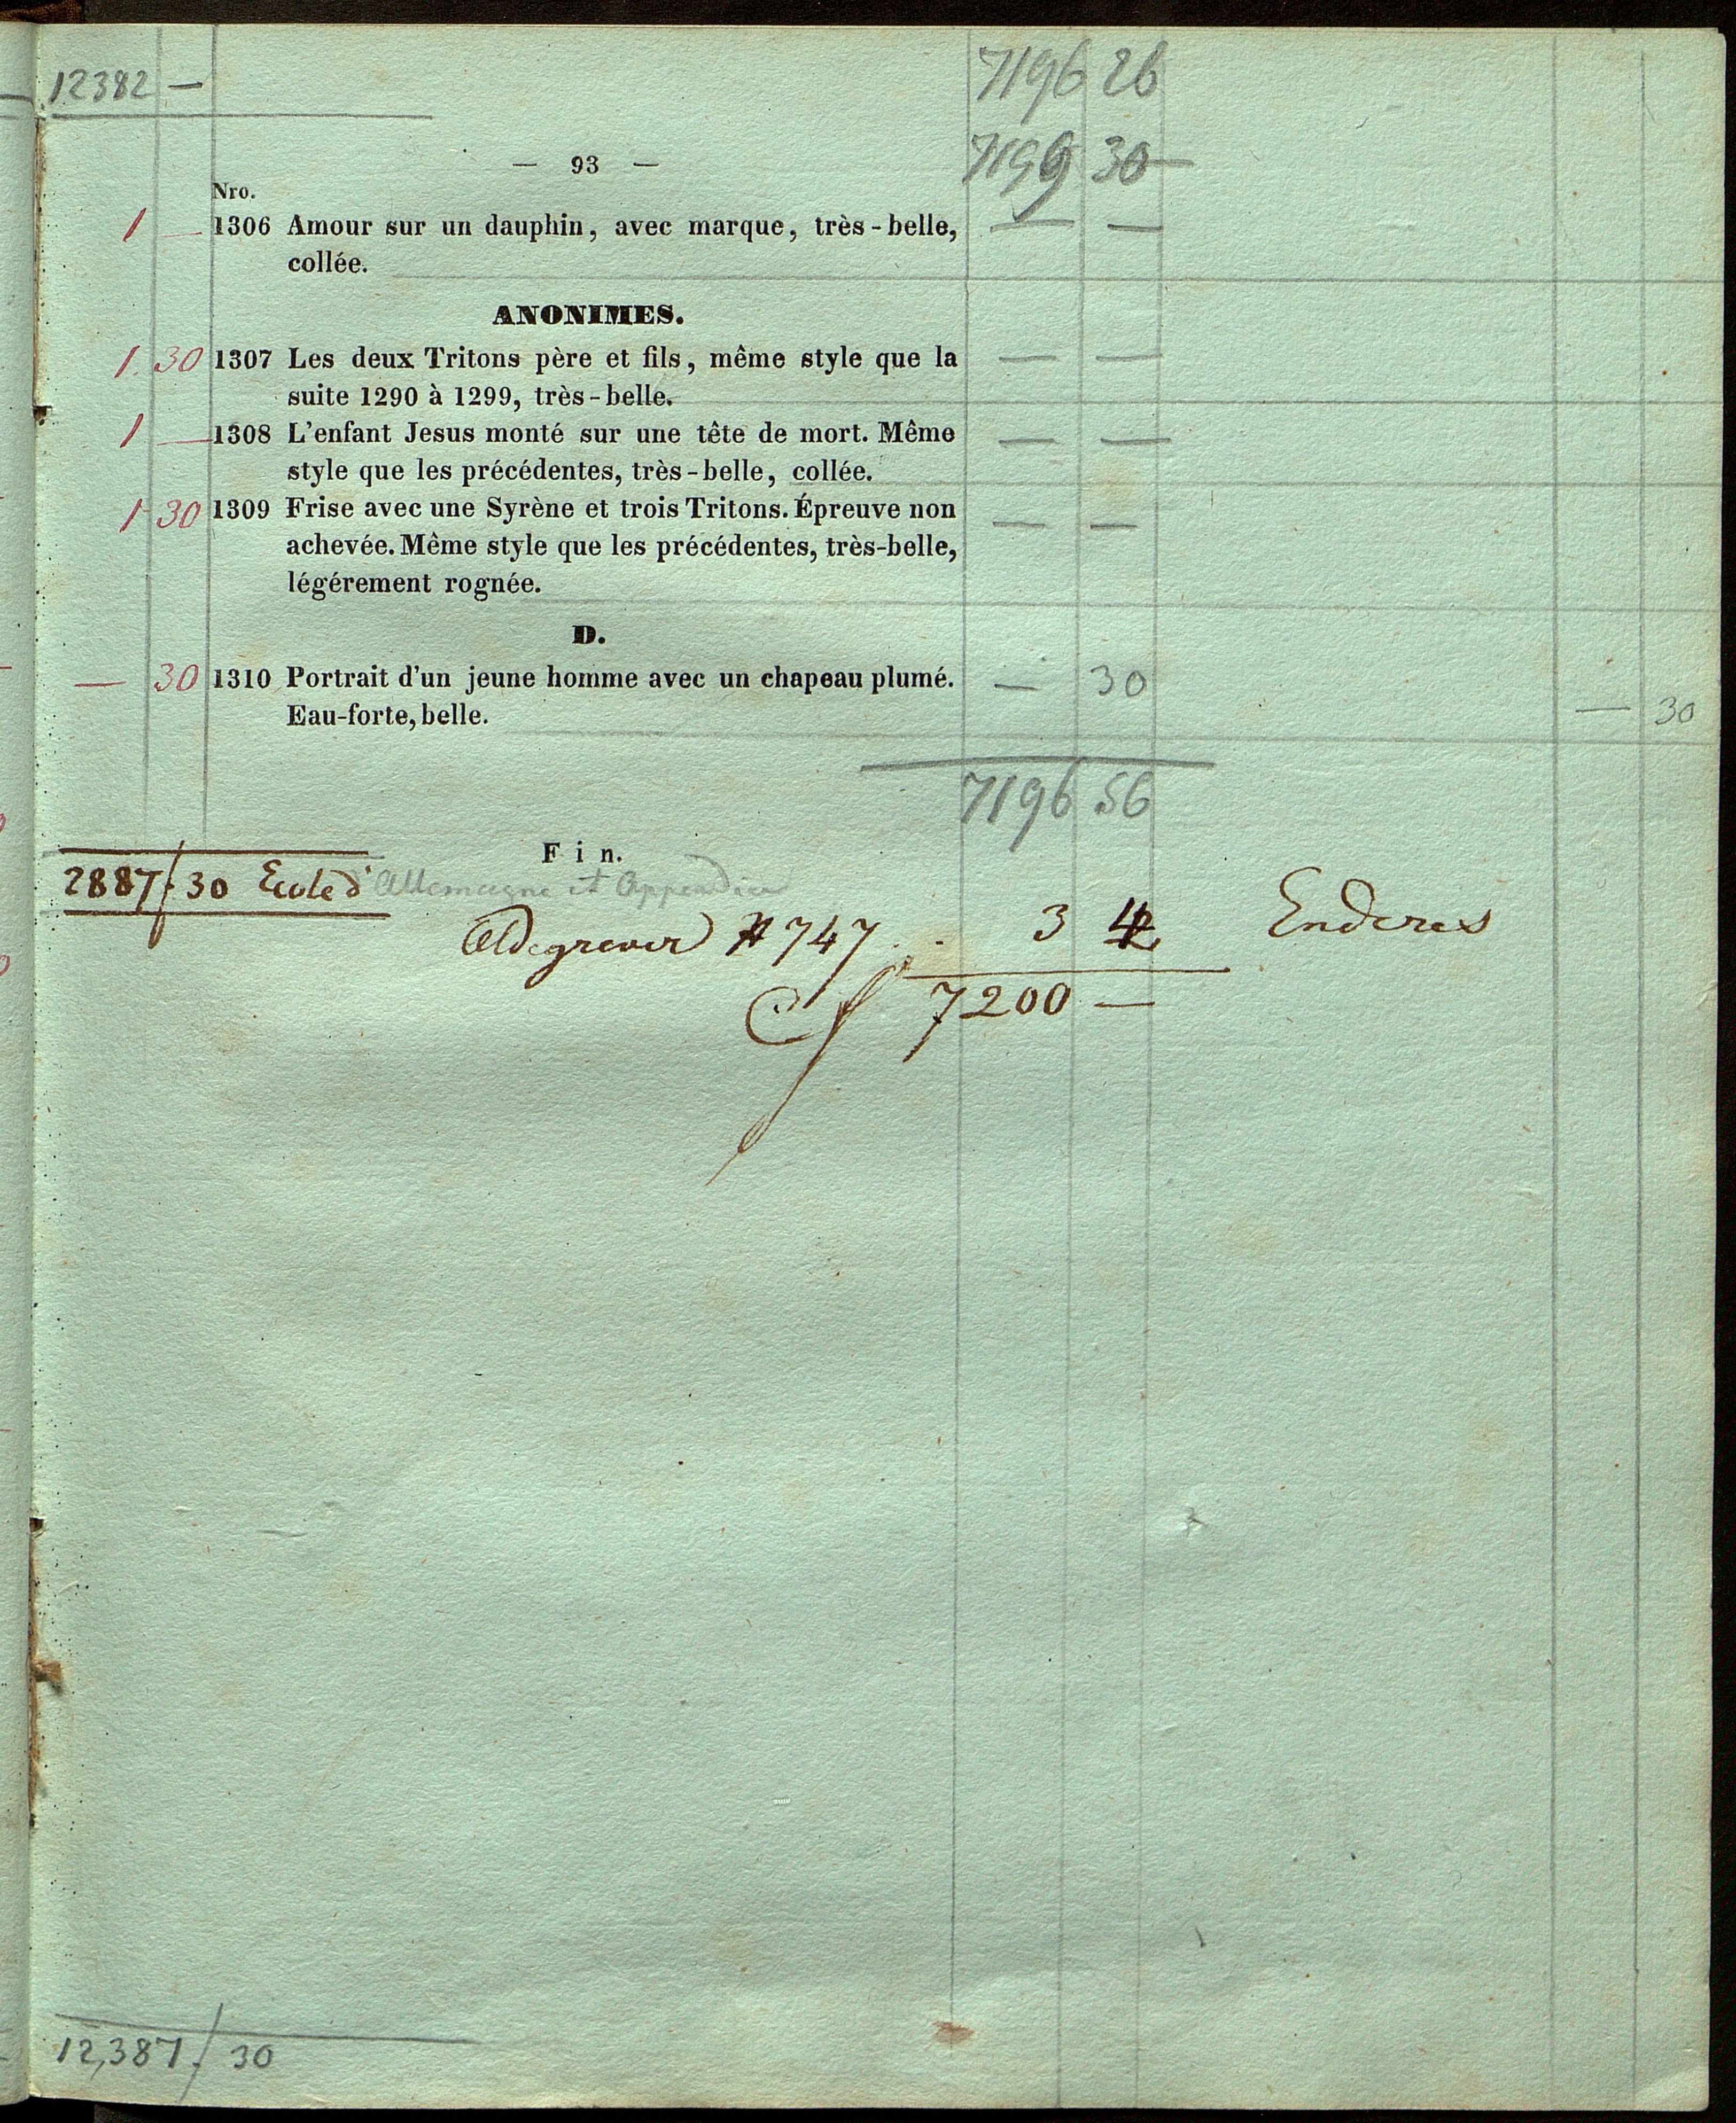 12382 — 7196 26
— 93 — 7199 30 —
Nro.
1 — 1306 Amour sur un dauphin, avec marque, très-belle, — —
collée.
ANONIMES.
1 30 1307 Les deux Tritons père et fils, même style que la — —
suite 1290 à 1299, très-belle.
1 — 1308 L'enfant Jesus monté sur une tête de mort. Même — —
style que les précédentes, très-belle, collée.
1 30 1309 Frise avec une Syrène et trois Tritons. Épreuve non — —
achevée. Même style que les précédentes, très-belle,
légérement rognée.
D.
— 30 1310 Portrait d'un jeune homme avec un chapeau plumé. — 30
Eau-forte, belle. — 30
7196 56
Fin.
2887/30 Ecole d' Allemagne et Appendice
Aldegrever # 747 . . 3 4 Enderes
7200 —
12,387/30